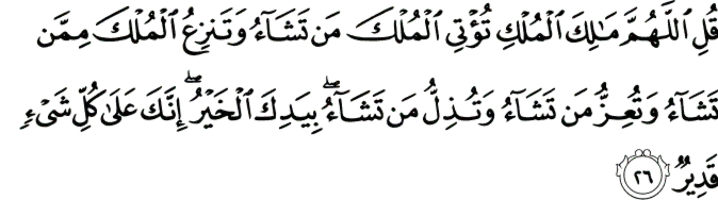 قُلِ ٱللَّهُمَّ مَٰلِكَ ٱلْمُلْكِ تُؤْتِى ٱلْمُلْكَ مَن تَشَآءُ وَتَنزِعُ ٱلْمُلْكَ مِمَّن
تَشَآءُ وَتُعِزُّ مَن تَشَآءُ وَتُذِلُّ مَن تَشَآءُ ۖ بِيَدِكَ ٱلْخَيْرُ ۖ إِنَّكَ عَلَىٰ كُلِّ شَىْءٍ
قَدِيرٌ ٢٦